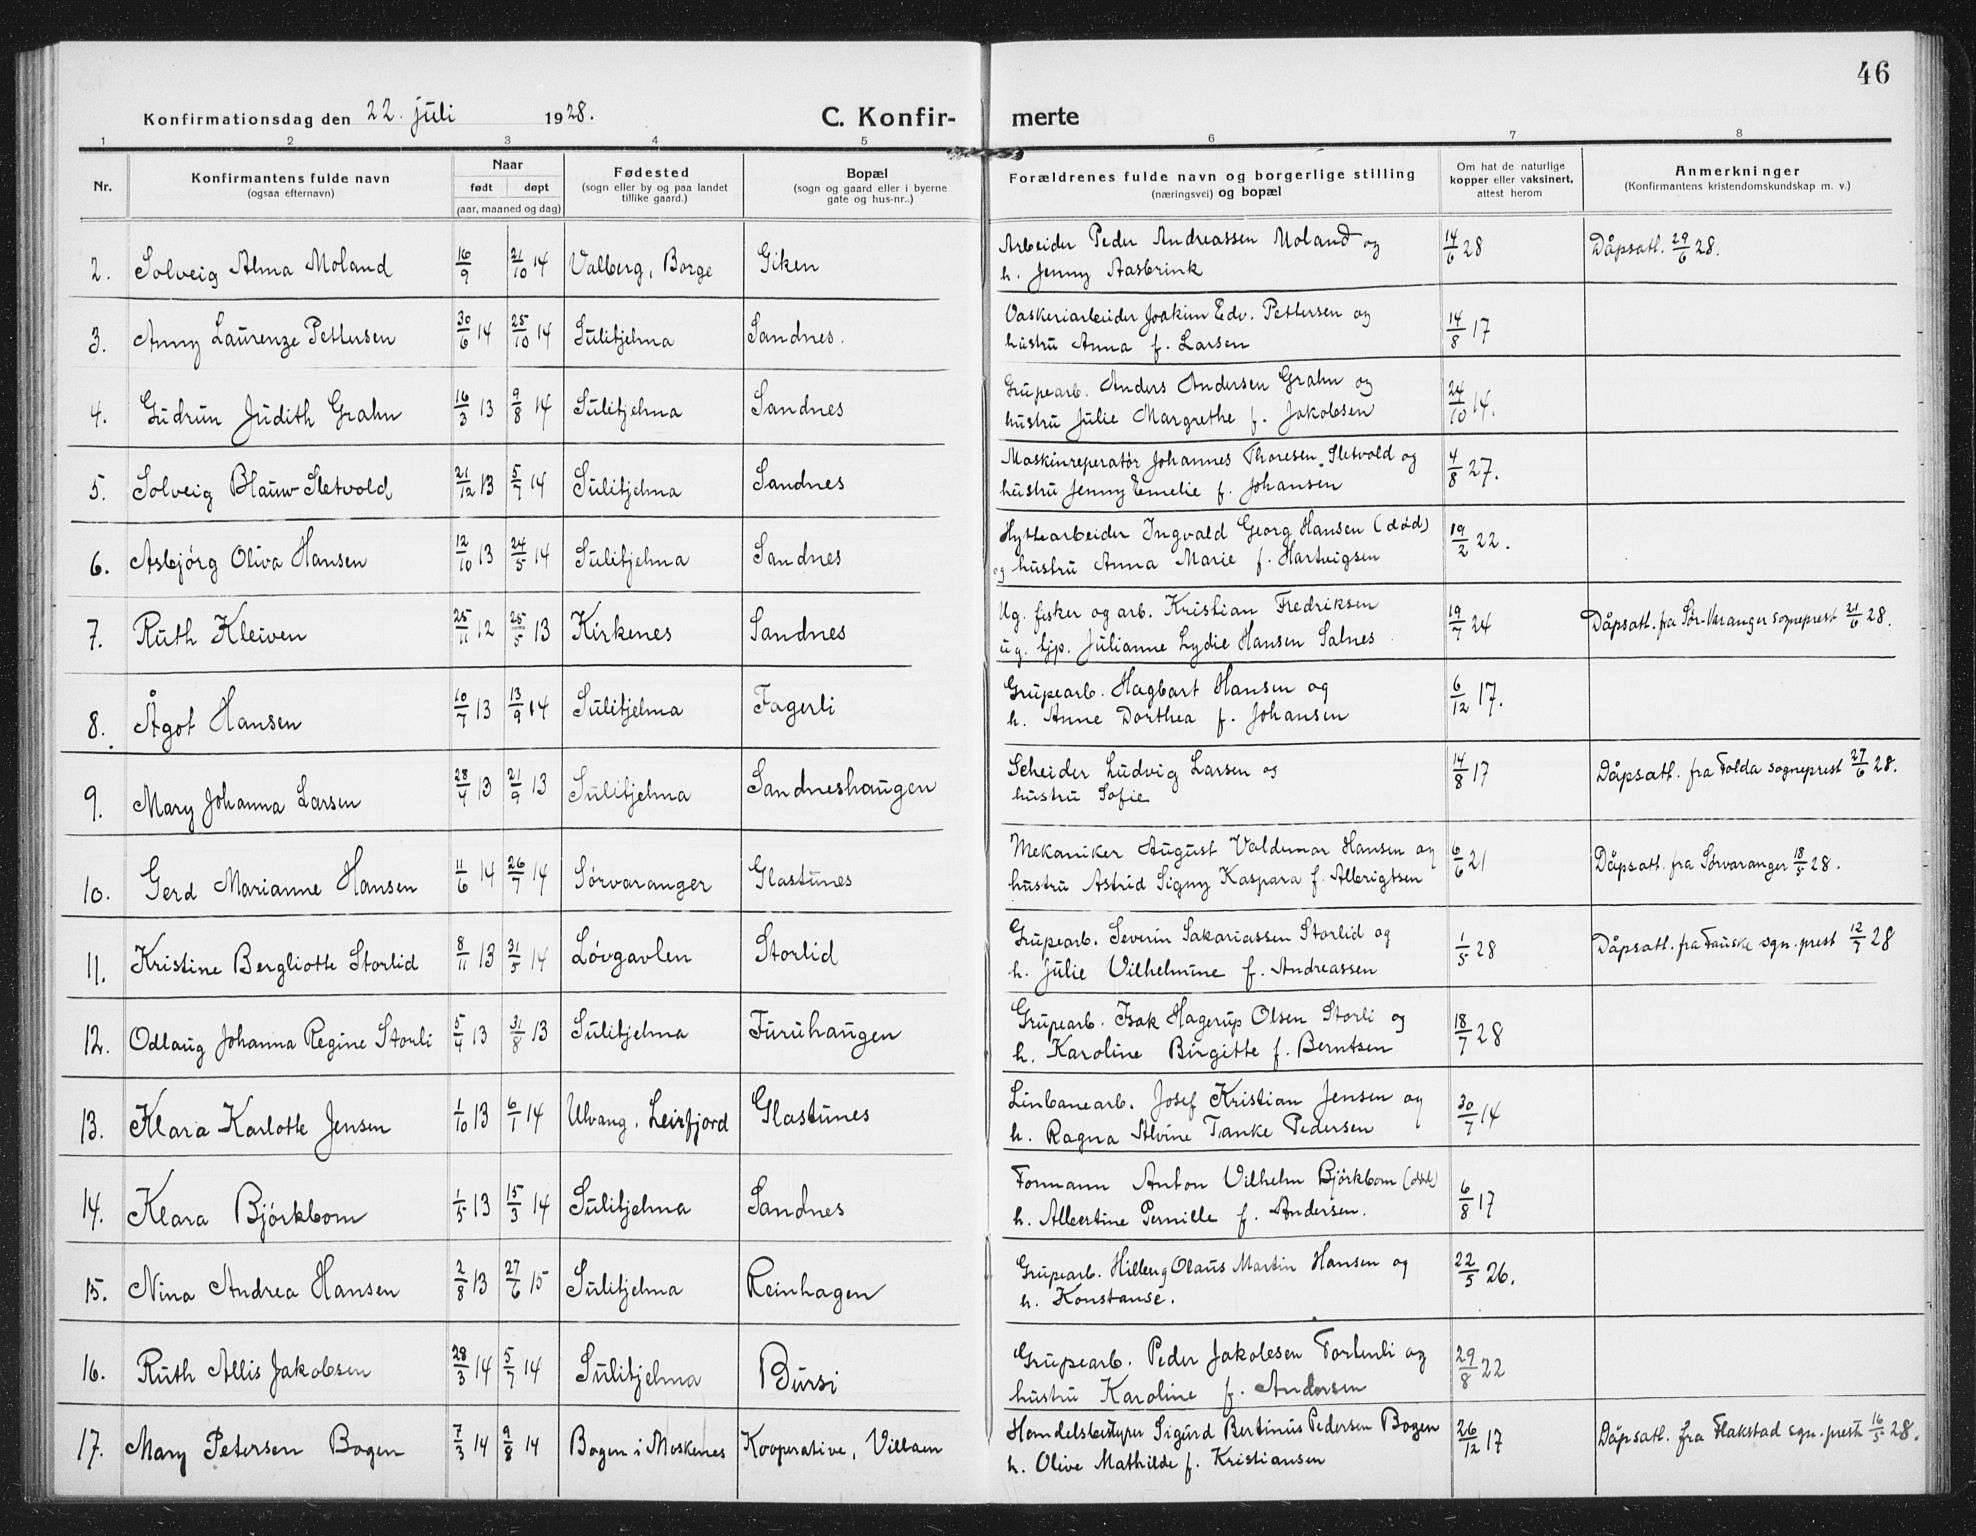 46
Konfirmationsdag den 22. juli 1928. C. Konfir- merte
1 2 3 4 5 6 7 8
Nr.
Konfirmantens fulde navn
(ogsaa efternavn)
Naar
født døpt
(aar, maaned og dag)
Fødested
(sogn eller by og paa landet
tillike gaard.)
Bopæl
(sogn og gaard eller i byerne
gate og hus-nr..)
Forældrenes fulde navn og borgerlige stilling
(næringsvei) og bopæl
Om hat de naturlige
kopper eller vaksinert,
attest herom
Anmerkninger
(Konfirmantens kristendomskundskap m. v.)
2. Solveig Alma Moland 16/9 21/10 14 Valberg, Borge Giken Arbeider Peder Andreassen Moland og 14/6 28 Dåpsatt. 29/6 28.
h. Jenny Aasbrink
3. Anny Laurenze Pettersen 30/6 14 25/10 14 Sulitjelma Sandnes. Vaskeriarbeider Joakim Edv. Pettersen og 14/8 17
hustru Anna f. Larsen
4. Gudrun Judith Grahn 16/3 13 9/8 14 Sulitjelma Sandnes Grupearb. Anders Andersen Grahn og 24/10 14.
hustru Julie Margrethe f. Jakobsen
5. Solveig Blauw Sletvold 21/12 13 5/7 14 Sulitjelma Sandnes Maskinreperatør Johannes Thoresen Sletvold og 4/8 27.
hustru Jenny Emelie f. Johansen
6. Asbjørg Oliva Hansen 12/10 13 24/5 14 Sulitjelma Sandnes Hyttearbeider Ingvald Georg Hansen (død) 19/2 22.
og hustru Anna Marie f. Hartvigsen
7. Ruth Kleiven 25/11 12 25/5 13 Kirkenes Sandnes Ug. fisker og arb. Kristian Fredriksen 19/7 24 Dåpsatt. fra Sør-Varanger sogneprest 21/6 28.
ug. tjp. Julianne Lydie Hansen Salnes
8. Ågot Hansen 10/7 13 13/9 14 Sulitjelma Fagerli Grupearb. Hagbart Hansen og 6/12 17.
h. Anne Dorthea f. Johansen
9. Mary Johanna Larsen 28/4 13 21/9 13 Sulitjelma Sandneshaugen Scheider Ludvig Larsen og 14/8 17 Dåpsatt. fra Folda sogneprest 27/6 28.
hustru Sofie
10. Gerd Marianne Hansen 11/6 14 26/7 14 Sørvaranger Glastunes Mekaniker August Valdemar Hansen og 6/6 21 Dåpsatt. fra Sørvaranger 18/5 28.
hustru Astrid Signy Kaspara f. Albrigtsen
11. Kristine Bergliotte Storlid 8/11 13 31/5 14 Løvgavlen Storlid Grupearb. Severin Sakariassen Storlid og 1/5 28 Dåpsatt. fra Fauske sgn. prest 12/7 28
h. Julie Vilhelmine f. Andreassen
12. Odlaug Johanna Regine Storli 5/4 13 31/8 13 Sulitjelma Furuhaugen Grupearb. Isak Hagerup Olsen Storli og 18/7 28
h. Karoline Birgitte f. Berntsen
13. Klara Karlotte Jensen 1/10 13 6/7 14 Ulvang, Leirfjord Glastunes Linbanearb. Josef Kristian Jensen og 30/7 14
h. Ragna Alvine Tanke Pedersen
14. Klara Bjørkbom 1/5 13 15/3 14 Sulitjelma Sandnes Formann Anton Vilhelm Bjørkbom (død) 6/8 17
h. Albertine Pernille f. Andersen.
15. Nina Andrea Hansen 2/8 13 27/6 15 Sulitjelma Reinhagen Grupearb. Hilberg Olaus Martin Hansen og 22/5 26.
h. Konstanse.
16. Ruth Allis Jakobsen 28/3 14 5/7 14 Sulitjelma Bursi Grupearb. Peder Jakobsen Fortunli og 29/8 22
hustru Karoline f. Andersen
17. Mary Petersen Bogen 7/3 14 9/8 14 Bogen i Moskenes Kooperative, Villaen Handelsbestyrer Sigurd Bertinus Pedersen Bogen 26/12 17 Dåpsatt. fra Flakstad sgn. prest 16/5 28.
h. Olive Mathilde f. Kristiansen